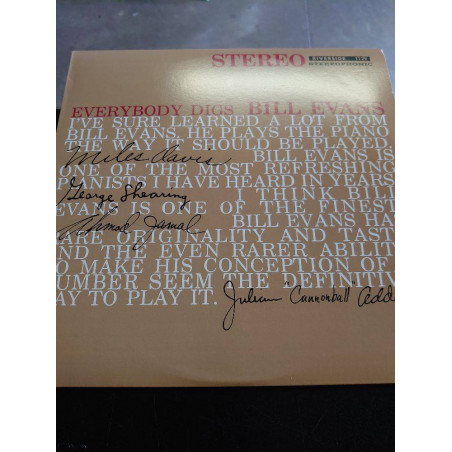 STEREO RIVERSIDE
STEREOPHONIC
EVERYBODY DIGS BILL EVANS
I'VE SURE LEARNED A LOT FROM
BILL EVANS. HE PLAYS THE PIANO
THE WAY IT SHOULD BE PLAYED.
Miles Davis BILL EVANS IS
ONE OF THE MOST REFRESHING
PIANISTS I HAVE HEARD IN YEARS
George Shearing I THINK BILL
EVANS IS ONE OF THE FINEST
Ahmad Jamal BILL EVANS HA
ARE ORIGINALITY AND TAST
ND THE EVEN RARER ABILIT
O MAKE HIS CONCEPTION OF
UMBER SEEM THE DEFINITIV
AY TO PLAY IT. Julian "Cannonball" Add